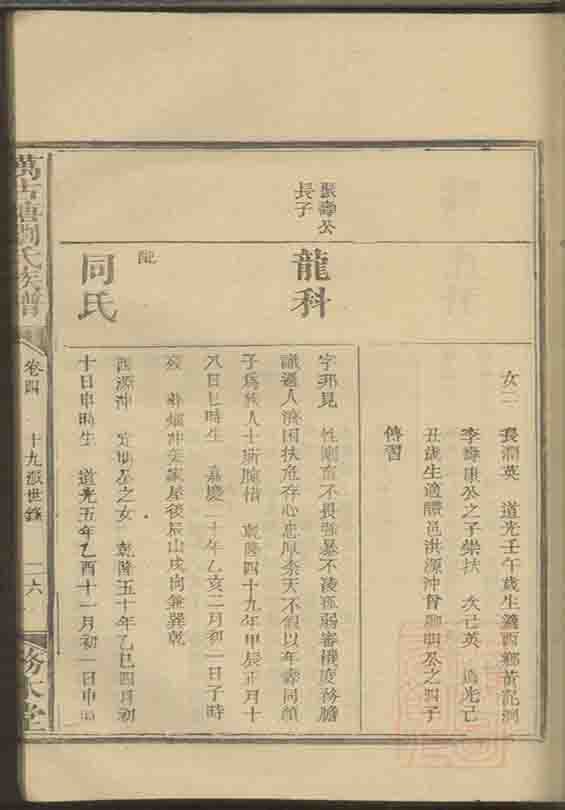 女三 長淵英 道光壬午歲生適西鄉黃龍洞
李壽康公之子崇扶 次己英 道光己
丑歲生適醴邑洪源沖曾聊明公之四子
傳習
振壽公
長子
龍科
字邦見 性剛直不畏強暴不凌孤弱審機度務膽
識過人濟困扶危存心忠厚奈天不假以年壽同顏
子爲族人士所腕惜 乾隆四十九年甲辰正月十
八日巳時生 嘉慶二十年乙亥二月初一日子時
歿 葬 沖 家屋後辰山戌向兼巽乾
配
周氏
西源沖 明公之女 乾隆五十年乙巳四月初
十日申時生 道光五年乙酉十一月初一日申時
萬古塘劉氏族譜
卷四 十九派世錄 一六
務本堂